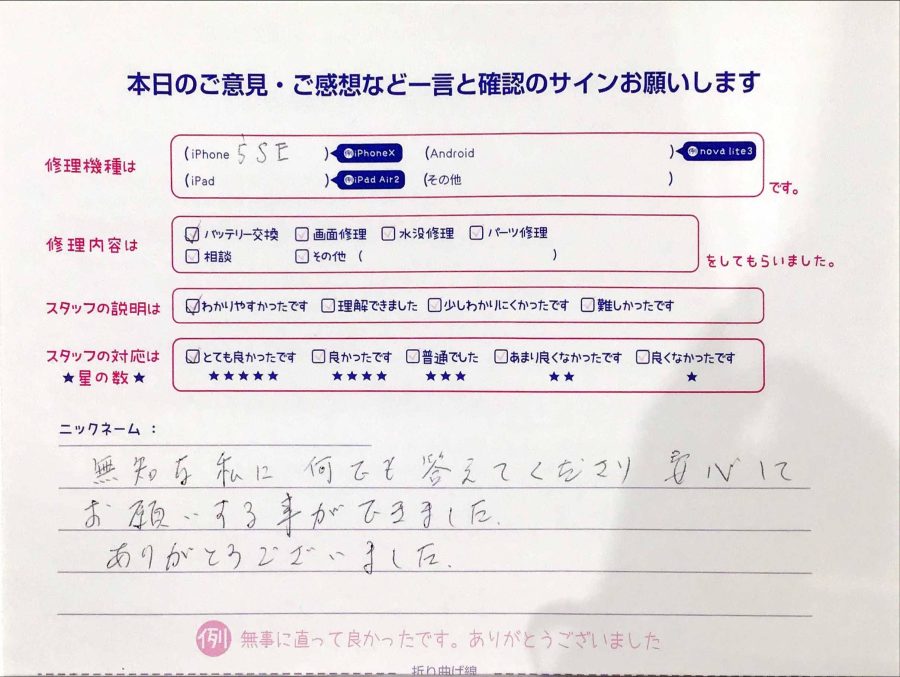 本日のご意見・ご感想など一言と確認のサインお願いします
修理機種は
(iPhone 5SE ) 例iPhoneX (Android ) 例nova lite3
(iPad ) 例iPad Air2 (その他 ) です。
修理内容は
バッテリー交換 画面修理 水没修理 パーツ修理
相談 その他 ( ) をしてもらいました。
スタッフの説明は わかりやすかったです 理解できました 少しわかりにくかったです 難しかったです
スタッフの対応は とても良かったです 良かったです 普通でした あまり良くなかったです 良くなかったです
★星の数★ ★★★★★ ★★★★ ★★★ ★★ ★
ニックネーム：
無知な私に 何でも 答えてくださり 安心して
お願いする事ができました.
ありがとうございました.
例 無事に直って良かったです。ありがとうございました
折り曲げ線